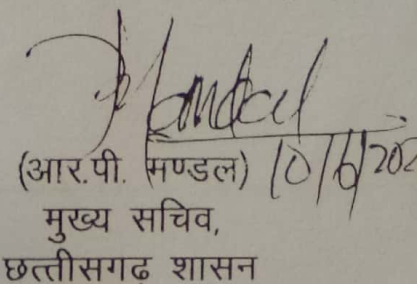 Mandal
(आर.पी. मण्डल) 10/6/202
मुख्य सचिव,
छत्तीसगढ़ शासन